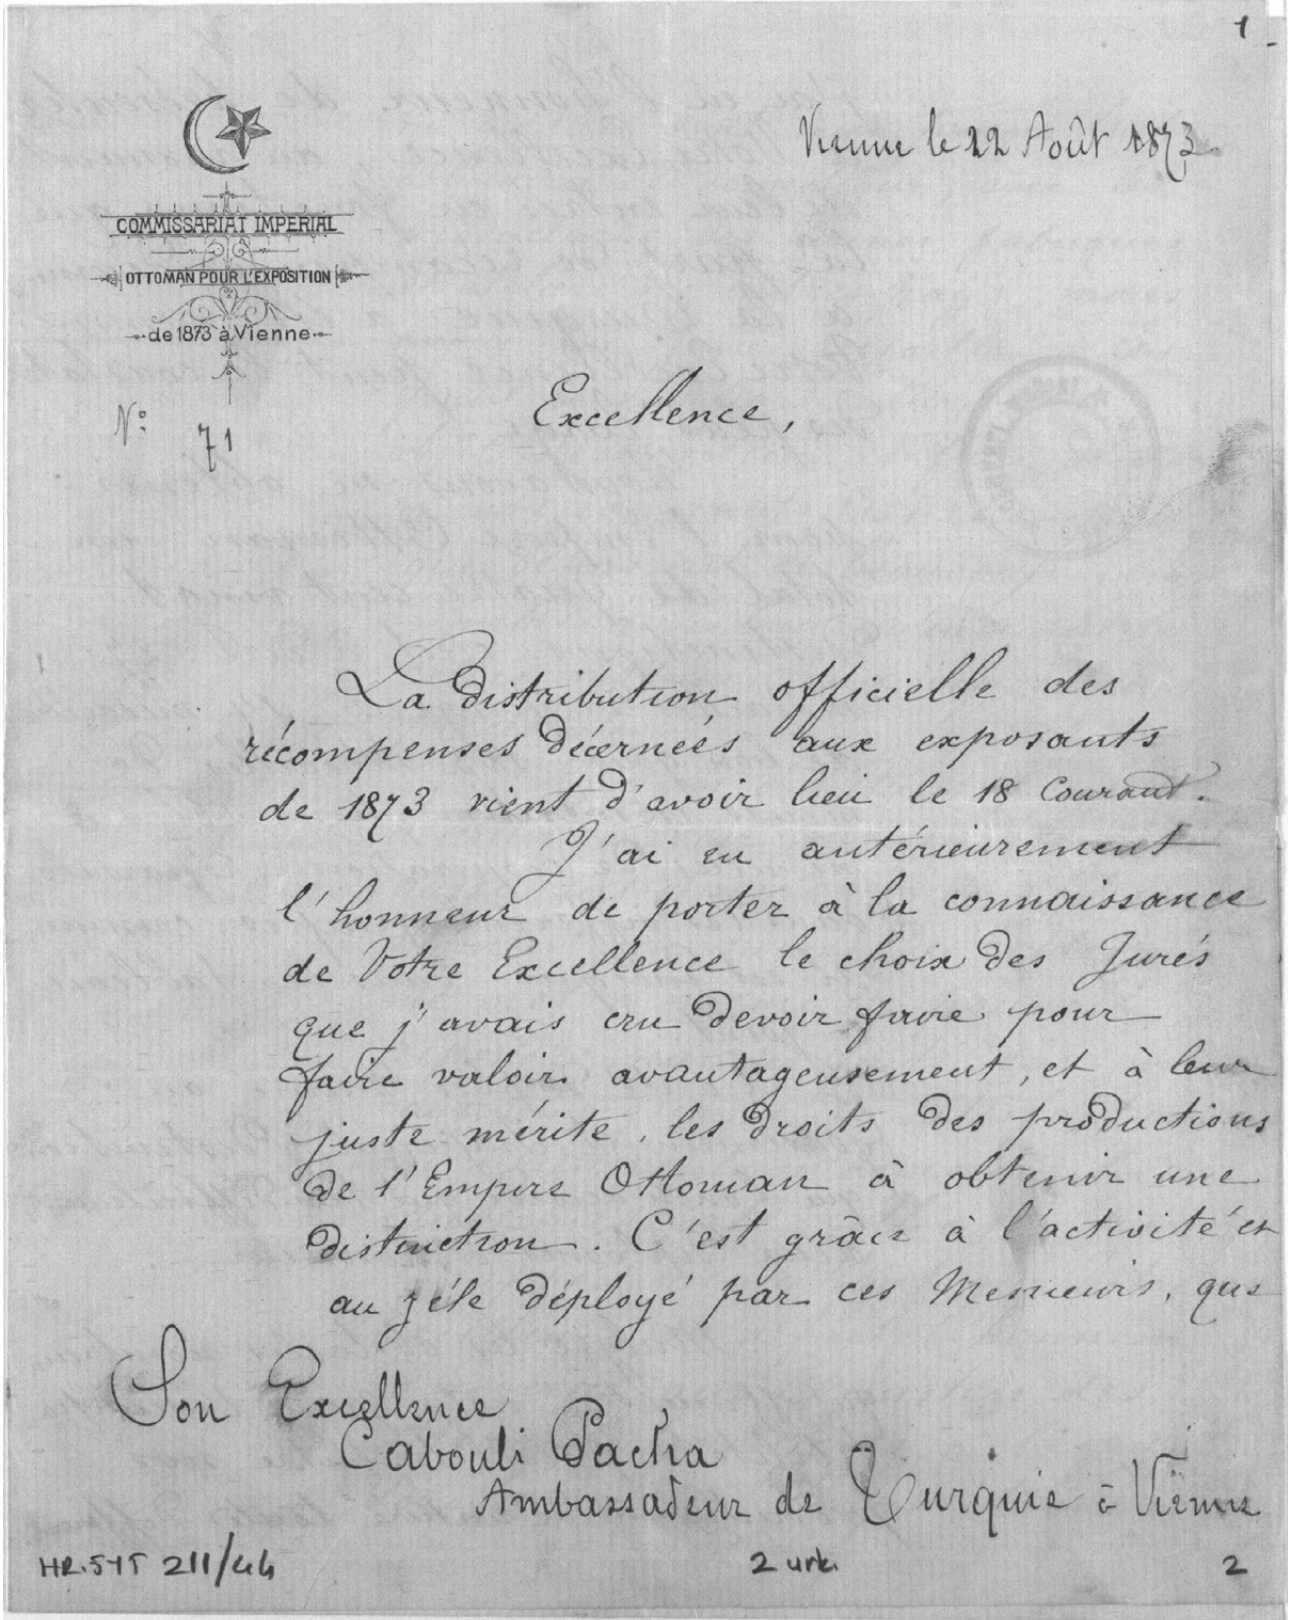 1
Vienne le 22 Août 1873
COMMISSARIAT IMPERIAL
OTTOMAN POUR L'EXPOSITION
de 1873 à Vienne
N° 71
Excellence,
La distribution officielle des
récompenses décernées aux exposants
de 1873 vient d'avoir lieu le 18 Courant.
J'ai eu antérieurement
l'honneur de porter à la connaissance
de Votre Excellence le choix des Jurés
que j'avais cru devoir faire pour
faire valoir avantageusement, et à leur
juste mérite, les droits des productions
de l'Empire Ottoman à obtenir une
distinction. C'est grâce à l'activité et
au zéle déployé par ces Messieurs, que
Son Excellence
Cabouli Pacha
Ambassadeur de Turquie à Vienne
HR.SYS 211/44
2 urk.
2